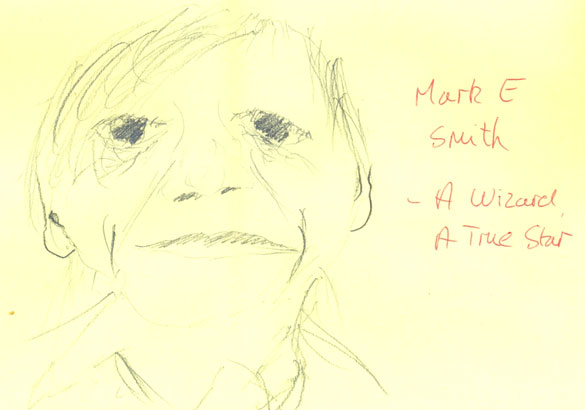 Mark E
Smith
- A Wizard,
A True Star